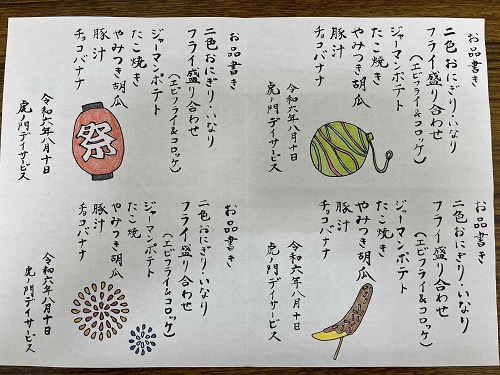 お品書き
二色おにぎり・いなり
フライ盛り合わせ
(エビフライ&コロッケ)
ジャーマンポテト
たこ焼き
やみつき胡瓜
豚汁
チョコバナナ
令和六年八月十日
虎ノ門デイサービス
お品書き
二色おにぎり・いなり
フライ盛り合わせ
(エビフライ&コロッケ)
ジャーマンポテト
たこ焼き
やみつき胡瓜
豚汁
チョコバナナ
祭
令和六年八月十日
虎ノ門デイサービス
お品書き
二色おにぎり・いなり
フライ盛り合わせ
(エビフライ&コロッケ)
ジャーマンポテト
たこ焼き
やみつき胡瓜
豚汁
チョコバナナ
令和六年八月十日
虎ノ門デイサービス
お品書き
二色おにぎり・いなり
フライ盛り合わせ
(エビフライ&コロッケ)
ジャーマンポテト
たこ焼
やみつき胡瓜
豚汁
チョコバナナ
令和六年八月十日
虎ノ門デイサービス